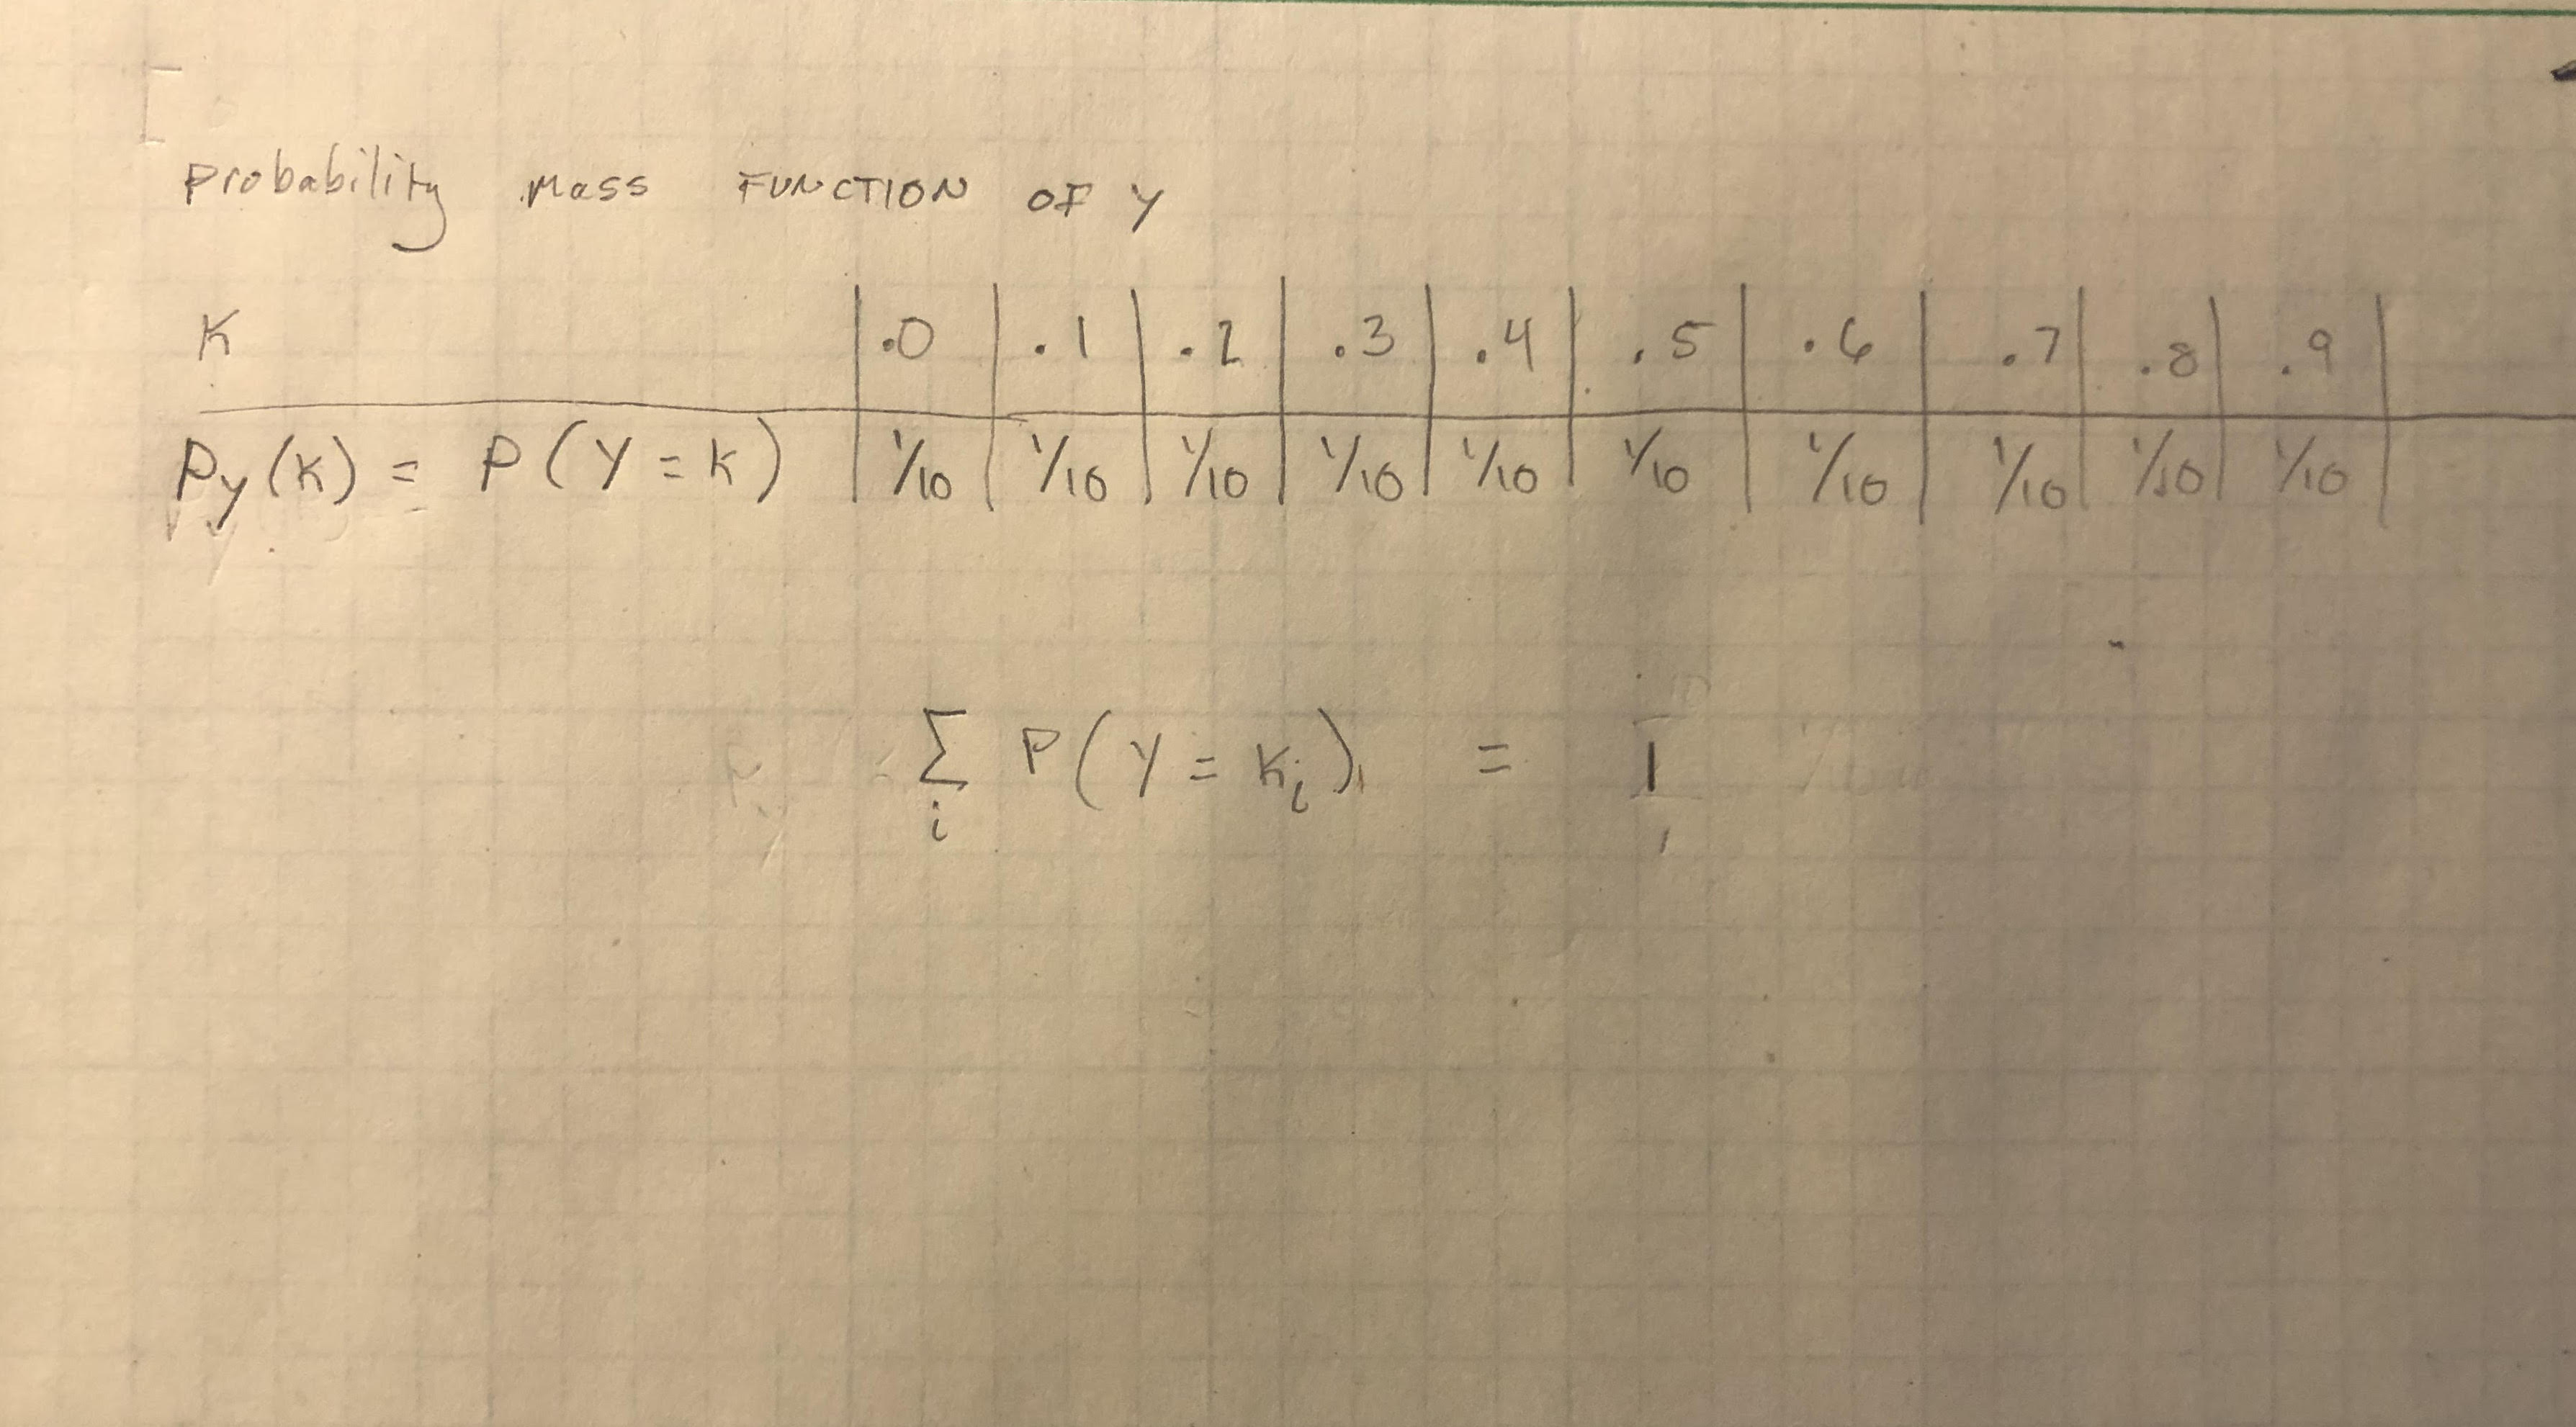 Probability Mass FUNCTION OF Y
K .0 .1 .2 .3 .4 .5 .6 .7 .8 .9
Py(K) = P(Y=K) 1/10 1/10 1/10 1/10 1/10 1/10 1/10 1/10 1/10 1/10
∑ P(Y = Ki) = 1
i